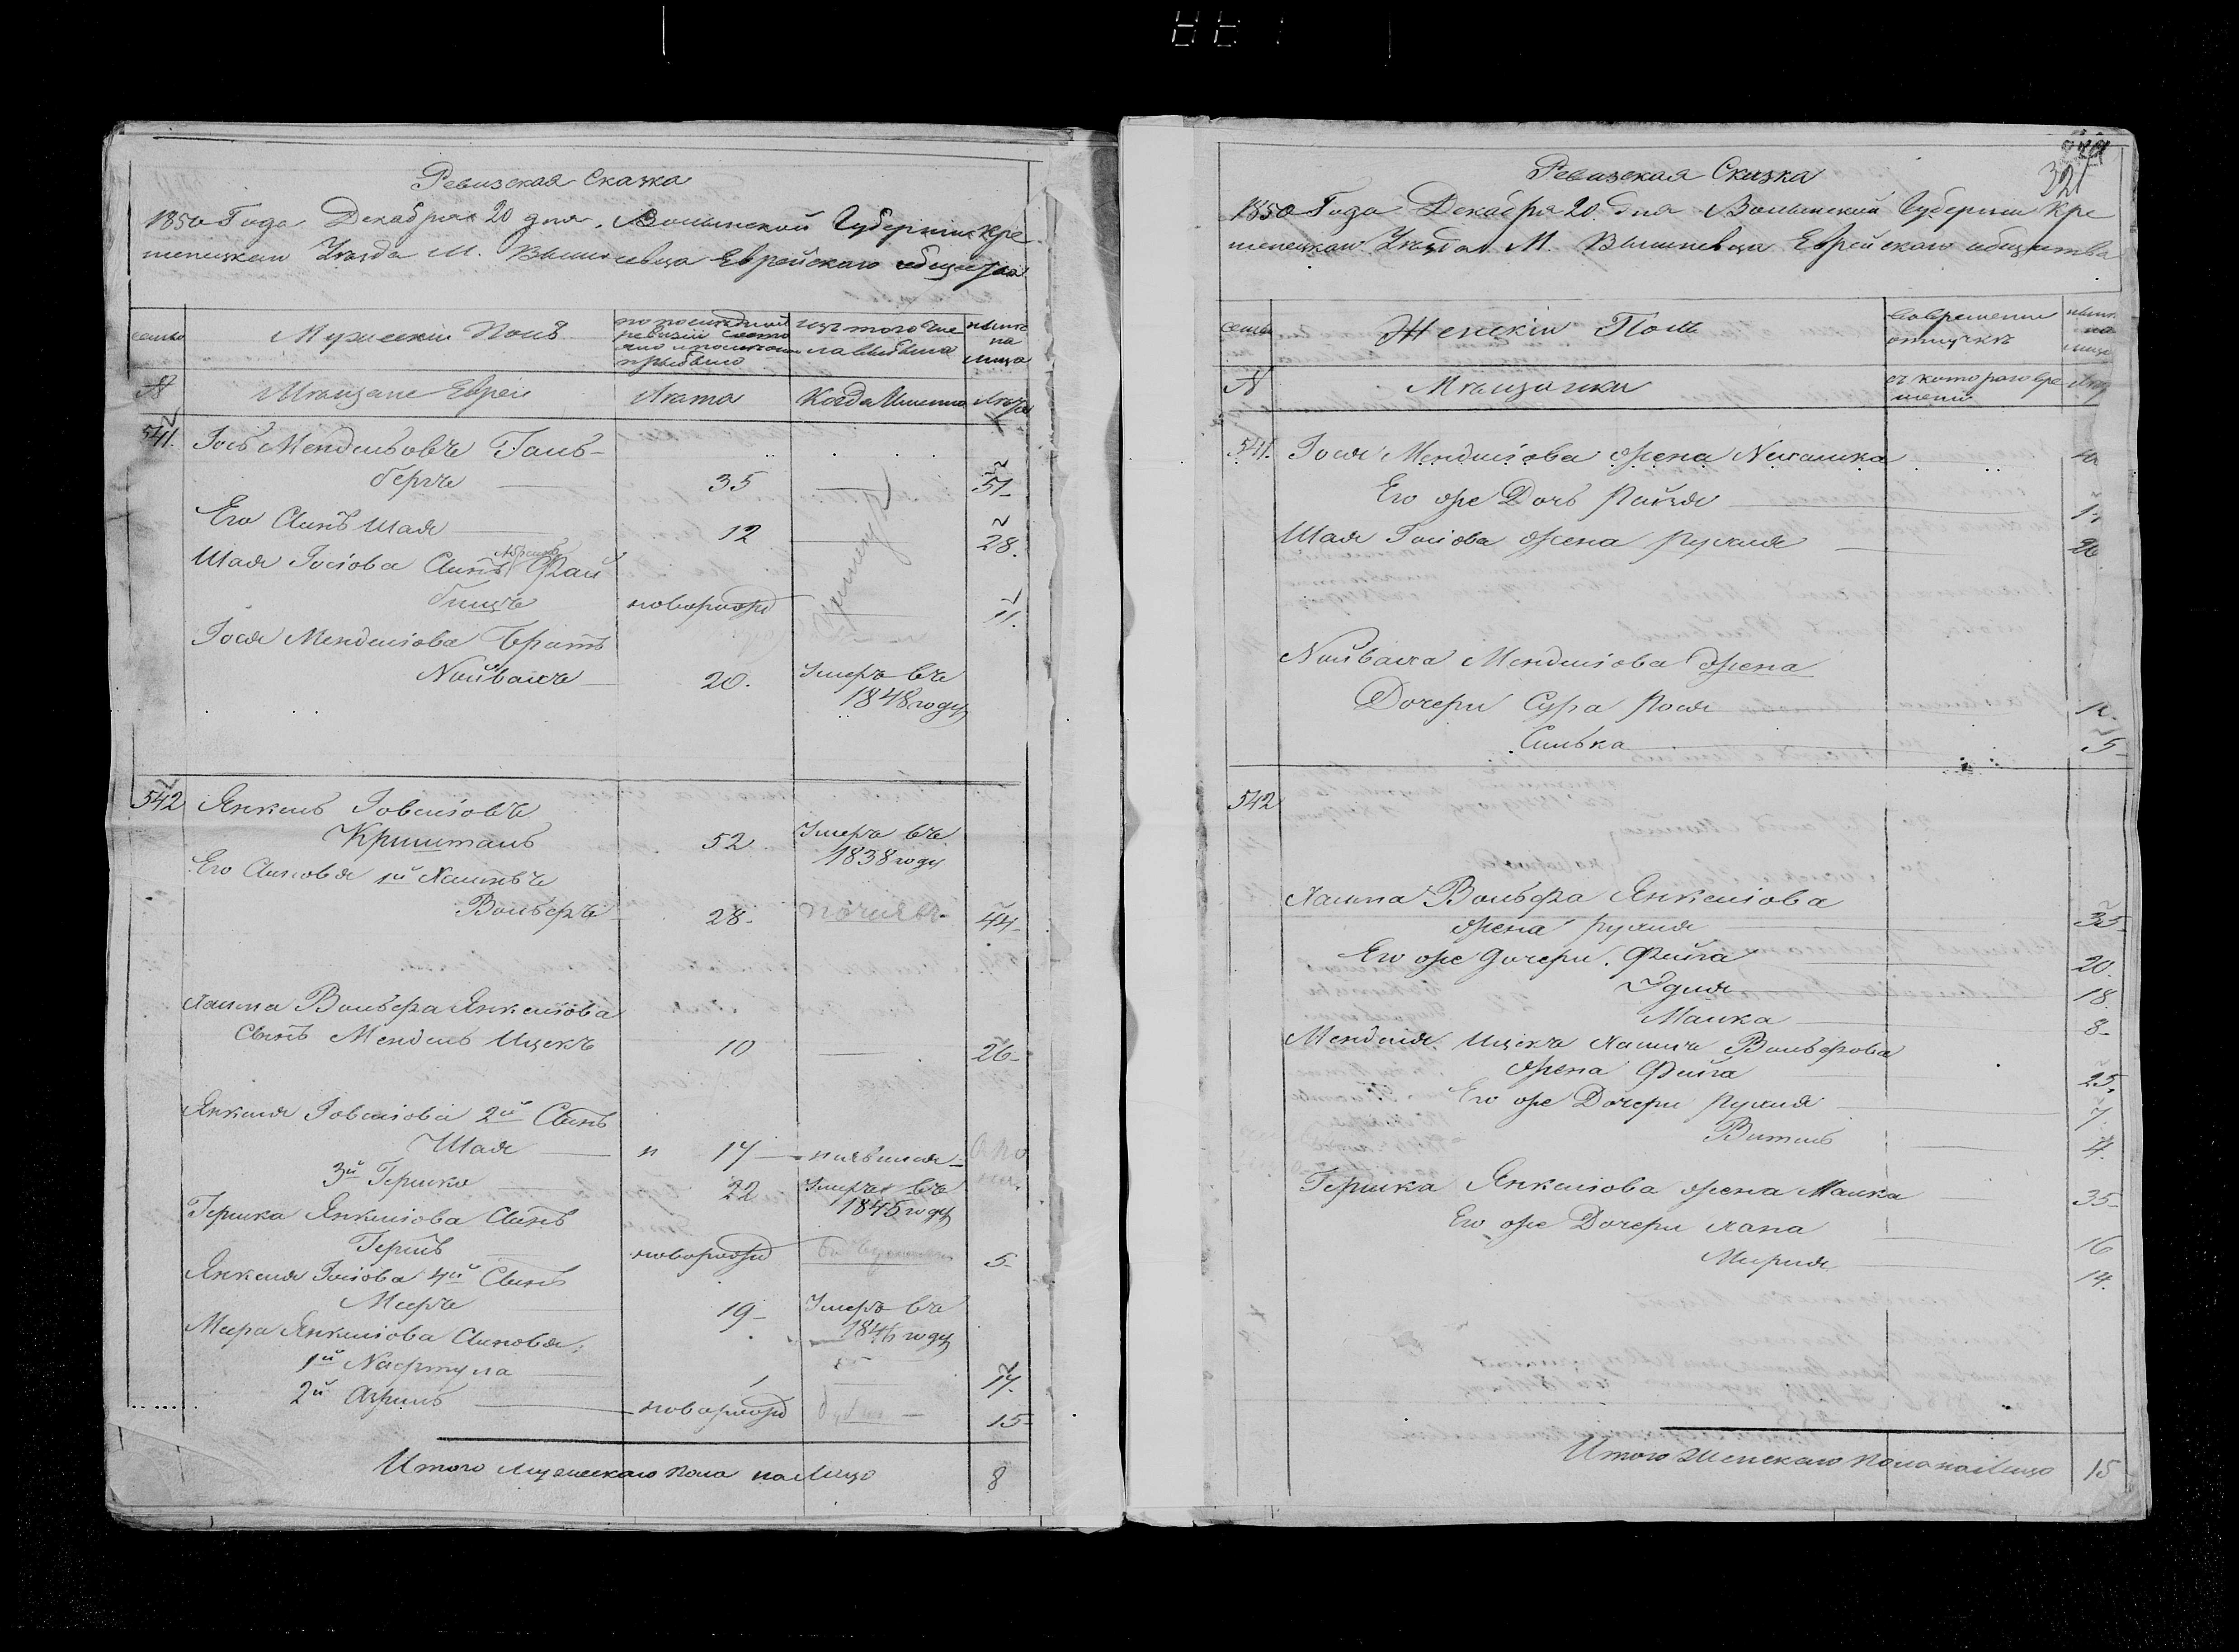 Ревизская Сказка
1850 Года Декабря 20 дня, Волынской Губернии Кре
менецкаго Уезда М. Вишневца Еврейскаго общества
семьи
Мужескій Полъ
по последней
ревизіи состо
яло и после того
прибыло
изъ того чис
ла выбыло
ныне
на
лицо
№
Мещане Евреи
Лета
Когда Именно
Лета
541.
Іось Мендельовъ Галь-
беръ
35
51
Его Сынъ Шая
12
28.
Абрамъ
Шая Іосіова Сынъ Фай
бишъ
новорожд
11.
Іося Менделіова Братъ
Нойвахъ
20.
Умеръ въ
1848 году
542
Янкель Іовеліовъ
Криштель
52
Умеръ въ
1838 году
Его Сыновья 1й Хаимъ
Вольфъ
28.
44
Хаима Вольфа Янкеліова
Сынъ Мендель Ицекъ
10
26
Янкеля Іовеліова 2й Сынъ
Шая
17
3й Гершко
22
Умеръ въ
1845 году
Гершка Янкеліова Сынъ
новорожд
5
Янкеля Іосіова 4й Сынъ
Мееръ
19
Умеръ въ
1846 году
Меера Янкеліова Сыновья,
1й Нафтула
1
17.
2й Азриль
новорожд
15
Итого мужескаго пола на Лицо
8
321
Ревизская Сказка
1850 Года Декабря 20. дня Волынской Губерніи Кре
менецкаго Уезда М. Вишневца Еврейскаго общества
семьи
Женскій Полъ
Вовременной
отлучкъ
ныне
на
лицо
№
Мещанки
съ котораго вре
мени
541.
Іося Менделіова жена
Его же Дочь Пайзя
Шая Іосіова жена Рухля
26
Нойваха Менделіова жена
Дочери Сура Рося
Силька
5
542
Хаима Вольфа Янкеліова
жена Рухля
35
Его же дочери. Фейга
20.
Эдля
18.
Малка
8
Менделя Ицекъ Хаимъ Вольфова
жена Фейга
25,
Его же Дочери Рухля
7.
Витель
4.
Гершка Янкеліова жена Малка
35
Его же Дочери Хана
16
Мирля
14.
Итого Женскаго Пола на Лицо
15